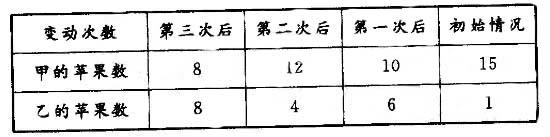 变动次数 第三次后 第二次后 第一次后 初始情况
甲的苹果数 8 12 10 15
乙的苹果数 8 4 6 1